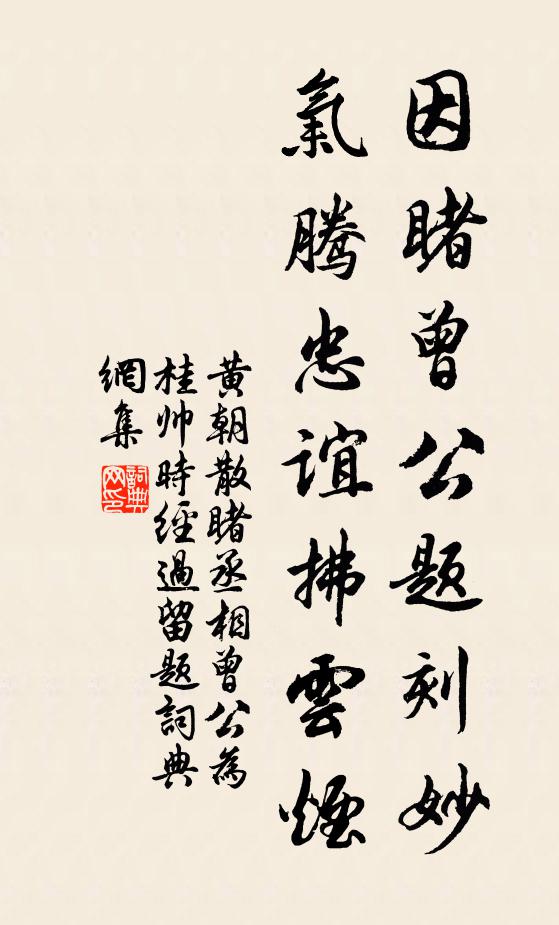 因睹曾公題刻妙
氣騰忠誼拂雲煙
黃朝散睹丞相曾公為
桂帅時經過留題詞典
網集
詞典
网印